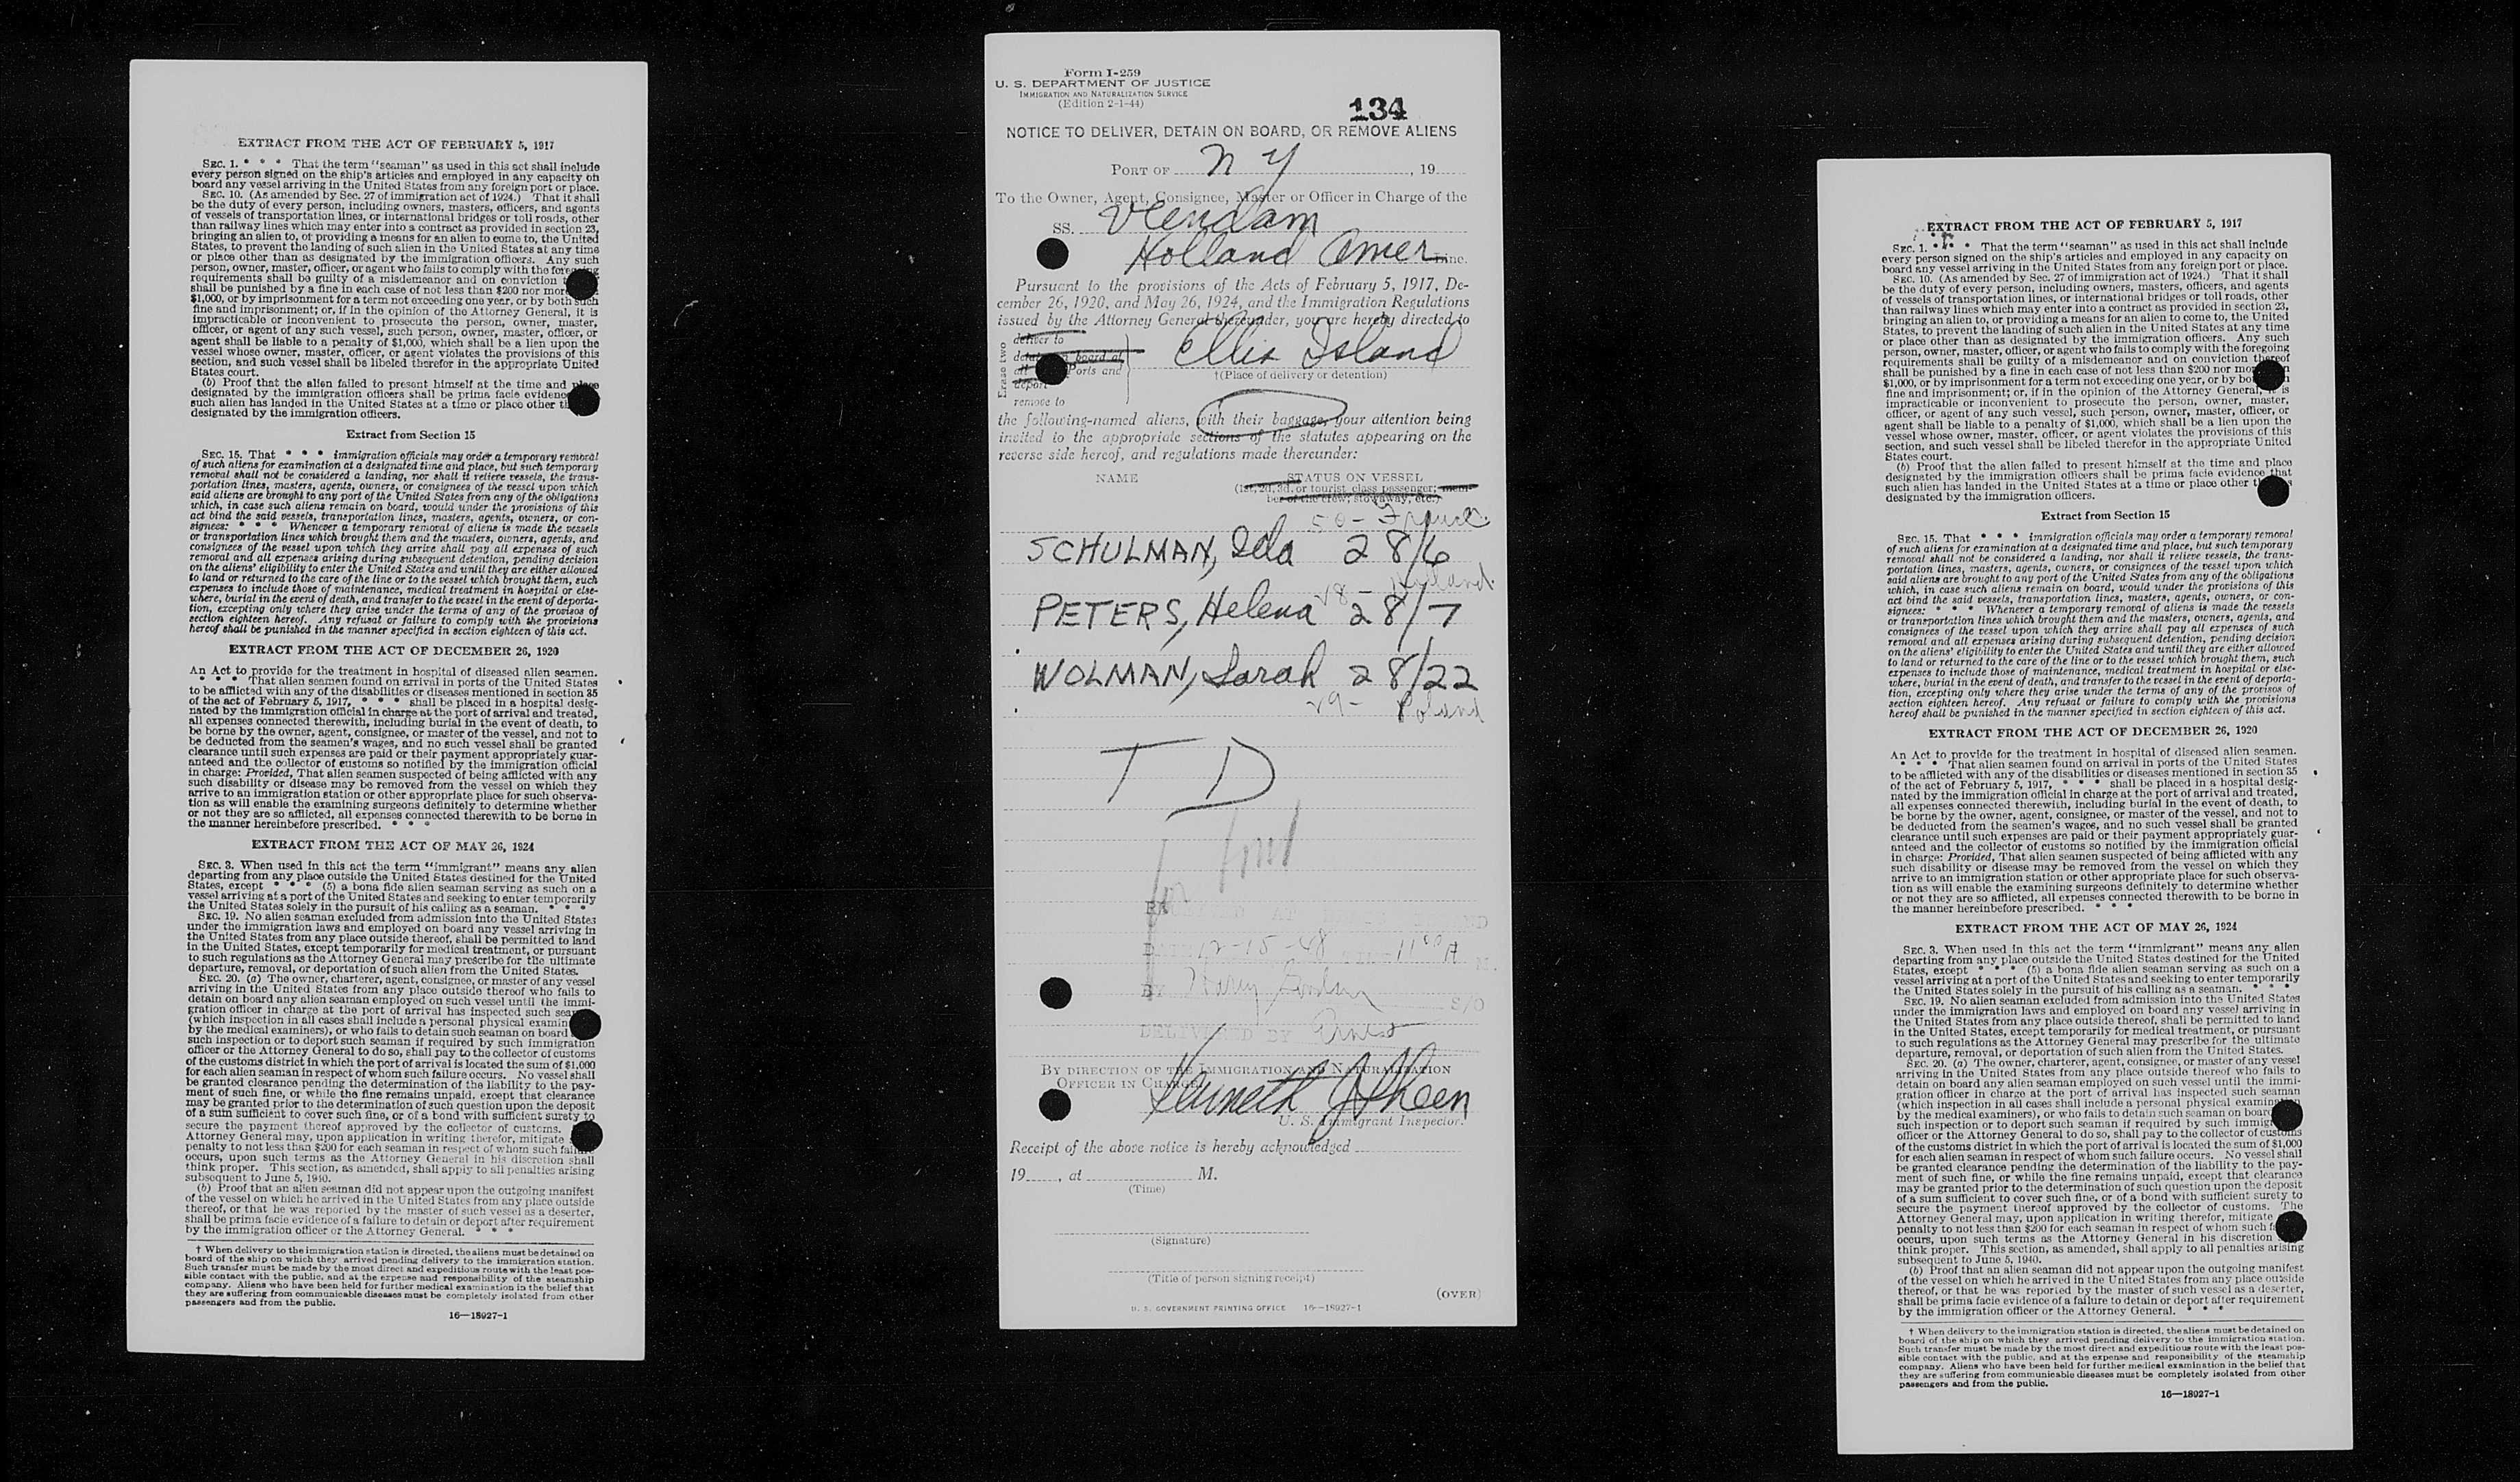 EXTRACT FROM THE ACT OF FEBRUARY 5, 1917
SEC. 1. * * * That the term "seaman" as used in this act shall include
every person signed on the ship's articles and employed in any capacity on
board any vessel arriving in the United States from any foreign port or place.
SEC. 10. (As amended by Sec. 27 of immigration act of 1924.) That it shall
be the duty of every person, including owners, masters, officers, and agents
of vessels of transportation lines, or international bridges or toll roads, other
than railway lines which may enter into a contract as provided in section 23,
bringing an alien to, or providing a means for an alien to come to, the United
States, to prevent the landing of such alien in the United States at any time
or place other than as designated by the immigration officers. Any such
person, owner, master, officer, or agent who fails to comply with the foregoing
requirements shall be guilty of a misdemeanor and on conviction
shall be punished by a fine in each case of not less than $200 nor more
$1,000, or by imprisonment for a term not exceeding one year, or by both such
fine and imprisonment; or, if in the opinion of the Attorney General, it is
impracticable or inconvenient to prosecute the person, owner, master,
officer, or agent of any such vessel, such person, owner, master, officer, or
agent shall be liable to a penalty of $1,000, which shall be a lien upon the
vessel whose owner, master, officer, or agent violates the provisions of this
section, and such vessel shall be libeled therefor in the appropriate United
States court.
(b) Proof that the alien failed to present himself at the time and place
designated by the immigration officers shall be prima facie evidence
such alien has landed in the United States at a time or place other
designated by the immigration officers.
Extract from Section 15
SEC. 15. That * * * immigration officials may order a temporary removal
of such aliens for examination at a designated time and place, but such temporary
removal shall not be considered a landing, nor shall it relieve vessels, the trans-
portation lines, masters, agents, owners, or consignees of the vessel upon which
said aliens are brought to any port of the United States from any of the obligations
which, in case such aliens remain on board, would under the provisions of this
act bind the said vessels, transportation lines, masters, agents, owners, or con-
signees: * * * Whenever a temporary removal of aliens is made the vessels
or transportation lines which brought them and the masters, owners, agents, and
consignees of the vessel upon which they arrive shall pay all expenses of such
removal and all expenses arising during subsequent detention, pending decision
on the aliens' eligibility to enter the United States and until they are either allowed
to land or returned to the care of the line or to the vessel which brought them, such
expenses to include those of maintenance, medical treatment in hospital or else-
where, burial in the event of death, and transfer to the vessel in the event of deporta-
tion, excepting only where they arise under the terms of any of the provisos of
section eighteen hereof. Any refusal or failure to comply with the provisions
hereof shall be punished in the manner specified in section eighteen of this act.
EXTRACT FROM THE ACT OF DECEMBER 26, 1920
An Act to provide for the treatment in hospital of diseased alien seamen.
* * * That alien seamen found on arrival in ports of the United States
to be afflicted with any of the disabilities or diseases mentioned in section 35
of the act of February 5, 1917, * * * shall be placed in a hospital desig-
nated by the immigration official in charge at the port of arrival and treated,
all expenses connected therewith, including burial in the event of death, to
be borne by the owner, agent, consignee, or master of the vessel, and not to
be deducted from the seamen's wages, and no such vessel shall be granted
clearance until such expenses are paid or their payment appropriately guar-
anteed and the collector of customs so notified by the immigration official
in charge: Provided, That alien seamen suspected of being afflicted with any
such disability or disease may be removed from the vessel on which they
arrive to an immigration station or other appropriate place for such observa-
tion as will enable the examining surgeons definitely to determine whether
or not they are so afflicted, all expenses connected therewith to be borne in
the manner hereinbefore prescribed. * * *
EXTRACT FROM THE ACT OF MAY 26, 1924
SEC. 3. When used in this act the term "immigrant" means any alien
departing from any place outside the United States destined for the United
States, except * * * (5) a bona fide alien seaman serving as such on a
vessel arriving at a port of the United States and seeking to enter temporarily
the United States solely in the pursuit of his calling as a seaman. * * *
SEC. 19. No alien seaman excluded from admission into the United States
under the immigration laws and employed on board any vessel arriving in
the United States from any place outside thereof, shall be permitted to land
in the United States, except temporarily for medical treatment, or pursuant
to such regulations as the Attorney General may prescribe for the ultimate
departure, removal, or deportation of such alien from the United States.
SEC. 20. (a) The owner, charterer, agent, consignee, or master of any vessel
arriving in the United States from any place outside thereof who fails to
detain on board any alien seaman employed on such vessel until the immi-
gration officer in charge at the port of arrival has inspected such seaman
(which inspection in all cases shall include a personal physical examin
by the medical examiners), or who fails to detain such seaman on board
such inspection or to deport such seaman if required by such immigration
officer or the Attorney General to do so, shall pay to the collector of customs
of the customs district in which the port of arrival is located the sum of $1,000
for each alien seaman in respect of whom such failure occurs. No vessel shall
be granted clearance pending the determination of the liability to the pay-
ment of such fine, or while the fine remains unpaid, except that clearance
may be granted prior to the determination of such question upon the deposit
of a sum sufficient to cover such fine, or of a bond with sufficient surety to
secure the payment thereof approved by the collector of customs.
Attorney General may, upon application in writing therefor, mitigate
penalty to not less than $200 for each seaman in respect of whom such failure
occurs, upon such terms as the Attorney General in his discretion shall
think proper. This section, as amended, shall apply to all penalties arising
subsequent to June 5, 1940.
(b) Proof that an alien seaman did not appear upon the outgoing manifest
of the vessel on which he arrived in the United States from any place outside
thereof, or that he was reported by the master of such vessel as a deserter,
shall be prima facie evidence of a failure to detain or deport after requirement
by the immigration officer or the Attorney General. * * *
† When delivery to the immigration station is directed, the aliens must be detained on
board of the ship on which they arrived pending delivery to the immigration station.
Such transfer must be made by the most direct and expeditious route with the least pos-
sible contact with the public, and at the expense and responsibility of the steamship
company. Aliens who have been held for further medical examination in the belief that
they are suffering from communicable diseases must be completely isolated from other
passengers and from the public.
16—18927-1
Form I-259
U. S. DEPARTMENT OF JUSTICE
IMMIGRATION AND NATURALIZATION SERVICE
(Edition 2-1-44)
134
NOTICE TO DELIVER, DETAIN ON BOARD, OR REMOVE ALIENS
PORT OF N Y, 19
To the Owner, Agent, Consignee, Master or Officer in Charge of the
SS. Veendam
Holland Amer Line.
Pursuant to the provisions of the Acts of February 5, 1917, De-
cember 26, 1920, and May 26, 1924, and the Immigration Regulations
issued by the Attorney General thereunder, you are hereby directed to
Erase two
deliver to
board at
all Ports and
deport
remove to
Ellis Island
†(Place of delivery or detention)
the following-named aliens, with their baggage, your attention being
invited to the appropriate sections of the statutes appearing on the
reverse side hereof, and regulations made thereunder:
NAME STATUS ON VESSEL
(1st, 2d, 3d, or tourist class passenger; mem-
ber of the crew; stowaway, etc.)
50 - France
SCHULMAN, Ida 28/6
PETERS, Helena 28/7
WOLMAN, Sarah 28/22
29 - Poland
T D
for
12-15-48 11 00 A M.
BY Harry S/O
DELIVERED BY
BY DIRECTION OF THE IMMIGRATION AND NATURALIZATION
OFFICER IN CHARGE
Kenneth J Sheen
U. S. Immigrant Inspector.
Receipt of the above notice is hereby acknowledged
19, at M.
(Time)
(Signature)
(Title of person signing receipt)
(OVER)
U. S. GOVERNMENT PRINTING OFFICE 16—18927-1
EXTRACT FROM THE ACT OF FEBRUARY 5, 1917
SEC. 1. * * * That the term "seaman" as used in this act shall include
every person signed on the ship's articles and employed in any capacity on
board any vessel arriving in the United States from any foreign port or place.
SEC. 10. (As amended by Sec. 27 of immigration act of 1924.) That it shall
be the duty of every person, including owners, masters, officers, and agents
of vessels of transportation lines, or international bridges or toll roads, other
than railway lines which may enter into a contract as provided in section 23,
bringing an alien to, or providing a means for an alien to come to, the United
States, to prevent the landing of such alien in the United States at any time
or place other than as designated by the immigration officers. Any such
person, owner, master, officer, or agent who fails to comply with the foregoing
requirements shall be guilty of a misdemeanor and on conviction thereof
shall be punished by a fine in each case of not less than $200 nor more
$1,000, or by imprisonment for a term not exceeding one year, or by both
fine and imprisonment; or, if in the opinion of the Attorney General, it is
impracticable or inconvenient to prosecute the person, owner, master,
officer, or agent of any such vessel, such person, owner, master, officer, or
agent shall be liable to a penalty of $1,000, which shall be a lien upon the
vessel whose owner, master, officer, or agent violates the provisions of this
section, and such vessel shall be libeled therefor in the appropriate United
States court.
(b) Proof that the alien failed to present himself at the time and place
designated by the immigration officers shall be prima facie evidence that
such alien has landed in the United States at a time or place other
designated by the immigration officers.
Extract from Section 15
SEC. 15. That * * * immigration officials may order a temporary removal
of such aliens for examination at a designated time and place, but such temporary
removal shall not be considered a landing, nor shall it relieve vessels, the trans-
portation lines, masters, agents, owners, or consignees of the vessel upon which
said aliens are brought to any port of the United States from any of the obligations
which, in case such aliens remain on board, would under the provisions of this
act bind the said vessels, transportation lines, masters, agents, owners, or con-
signees: * * * Whenever a temporary removal of aliens is made the vessels
or transportation lines which brought them and the masters, owners, agents, and
consignees of the vessel upon which they arrive shall pay all expenses of such
removal and all expenses arising during subsequent detention, pending decision
on the aliens' eligibility to enter the United States and until they are either allowed
to land or returned to the care of the line or to the vessel which brought them, such
expenses to include those of maintenance, medical treatment in hospital or else-
where, burial in the event of death, and transfer to the vessel in the event of deporta-
tion, excepting only where they arise under the terms of any of the provisos of
section eighteen hereof. Any refusal or failure to comply with the provisions
hereof shall be punished in the manner specified in section eighteen of this act.
EXTRACT FROM THE ACT OF DECEMBER 26, 1920
An Act to provide for the treatment in hospital of diseased alien seamen.
* * * That alien seamen found on arrival in ports of the United States
to be afflicted with any of the disabilities or diseases mentioned in section 35
of the act of February 5, 1917, * * * shall be placed in a hospital desig-
nated by the immigration official in charge at the port of arrival and treated,
all expenses connected therewith, including burial in the event of death, to
be borne by the owner, agent, consignee, or master of the vessel, and not to
be deducted from the seamen's wages, and no such vessel shall be granted
clearance until such expenses are paid or their payment appropriately guar-
anteed and the collector of customs so notified by the immigration official
in charge: Provided, That alien seamen suspected of being afflicted with any
such disability or disease may be removed from the vessel on which they
arrive to an immigration station or other appropriate place for such observa-
tion as will enable the examining surgeons definitely to determine whether
or not they are so afflicted, all expenses connected therewith to be borne in
the manner hereinbefore prescribed. * * *
EXTRACT FROM THE ACT OF MAY 26, 1924
SEC. 3. When used in this act the term "immigrant" means any alien
departing from any place outside the United States destined for the United
States, except * * * (5) a bona fide alien seaman serving as such on a
vessel arriving at a port of the United States and seeking to enter temporarily
the United States solely in the pursuit of his calling as a seaman. * * *
SEC. 19. No alien seaman excluded from admission into the United States
under the immigration laws and employed on board any vessel arriving in
the United States from any place outside thereof, shall be permitted to land
in the United States, except temporarily for medical treatment, or pursuant
to such regulations as the Attorney General may prescribe for the ultimate
departure, removal, or deportation of such alien from the United States.
SEC. 20. (a) The owner, charterer, agent, consignee, or master of any vessel
arriving in the United States from any place outside thereof who fails to
detain on board any alien seaman employed on such vessel until the immi-
gration officer in charge at the port of arrival has inspected such seaman
(which inspection in all cases shall include a personal physical examination
by the medical examiners), or who fails to detain such seaman on board
such inspection or to deport such seaman if required by such immigr
officer or the Attorney General to do so, shall pay to the collector of customs
of the customs district in which the port of arrival is located the sum of $1,000
for each alien seaman in respect of whom such failure occurs. No vessel shall
be granted clearance pending the determination of the liability to the pay-
ment of such fine, or while the fine remains unpaid, except that clearance
may be granted prior to the determination of such question upon the deposit
of a sum sufficient to cover such fine, or of a bond with sufficient surety to
secure the payment thereof approved by the collector of customs. The
Attorney General may, upon application in writing therefor, mitigate
penalty to not less than $200 for each seaman in respect of whom such
occurs, upon such terms as the Attorney General in his discretion
think proper. This section, as amended, shall apply to all penalties arising
subsequent to June 5, 1940.
(b) Proof that an alien seaman did not appear upon the outgoing manifest
of the vessel on which he arrived in the United States from any place outside
thereof, or that he was reported by the master of such vessel as a deserter,
shall be prima facie evidence of a failure to detain or deport after requirement
by the immigration officer or the Attorney General. * * *
† When delivery to the immigration station is directed, the aliens must be detained on
board of the ship on which they arrived pending delivery to the immigration station.
Such transfer must be made by the most direct and expeditious route with the least pos-
sible contact with the public, and at the expense and responsibility of the steamship
company. Aliens who have been held for further medical examination in the belief that
they are suffering from communicable diseases must be completely isolated from other
passengers and from the public.
16—18927-1